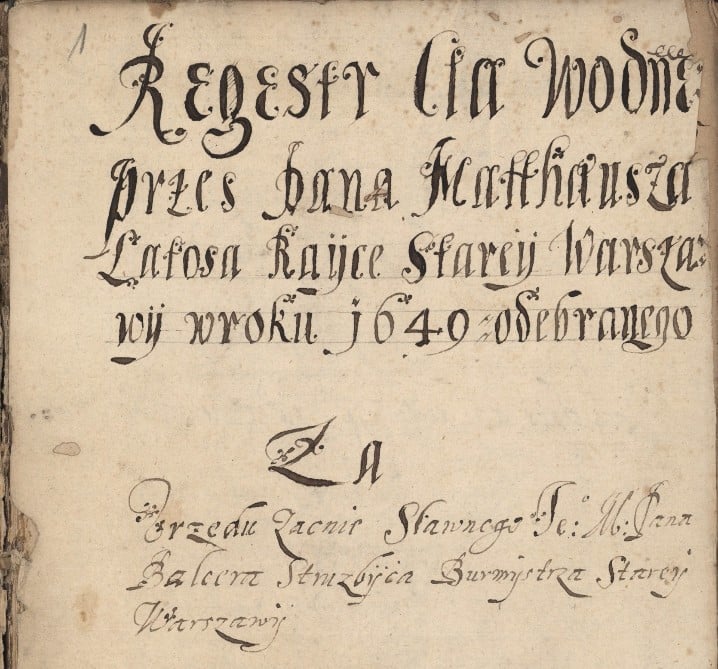 1
Regestr Cła Wodne
przes Pana Matthausza
Łatosa Rayce Starey Warsza:
wy w roku 1649 odebranego
Za
Vrzedu Zacnie Sławnego Je: M: Pana
Balcera Struzbÿca Burmystrza Starey
Warszawÿ